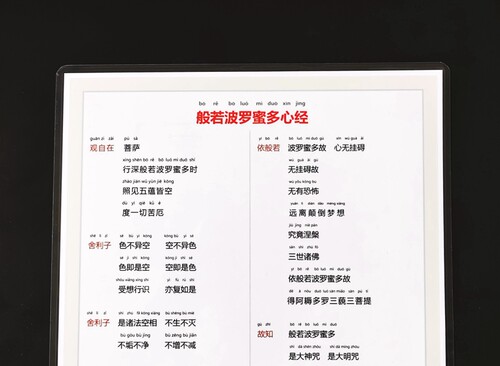 bo rě bo luó mì duō xīn jīng
般若波罗蜜多心经
guān zì zài pú sà
观自在 菩萨
xíng shēn bō rě bō luó mì duō shí
行深般若波罗蜜多时
zhào jiàn wǔ yùn jiē kōng
照见五蕴皆空
dù yī qiè kǔ è
度一切苦厄
shě lì zǐ sè bù yì kōng kōng bù yì sè
舍利子 色不异空 空不异色
sè jí shì kōng kōng jí shì sè
色即是空 空即是色
shòu xiǎng xíng shí yì fù rú shì
受想行识 亦复如是
shě lì zǐ shì zhū fǎ kōng xiàng bù shēng bù miè
舍利子 是诸法空相 不生不灭
bù gòu bù jìng bù zēng bù jiǎn
不垢不净 不增不减
yī bō rě bō luó mì duō gù xīn wú guà ài
依般若 波罗蜜多故 心无挂碍
wú guà ài gù
无挂碍故
wú yǒu kǒng bù
无有恐怖
yuǎn lí diān dǎo mèng xiǎng
远离颠倒梦想
jiū jìng niè pán
究竟涅槃
sān shì zhū fó
三世诸佛
yī bō rě bō luó mì duō gù
依般若波罗蜜多故
dé ā nòu duō luó sān miǎo sān pú tí
得阿耨多罗三藐三菩提
gù zhī bō rě bō luó mì duō
故知 般若波罗蜜多
shì dà shén zhòu shì dà míng zhòu
是大神咒 是大明咒